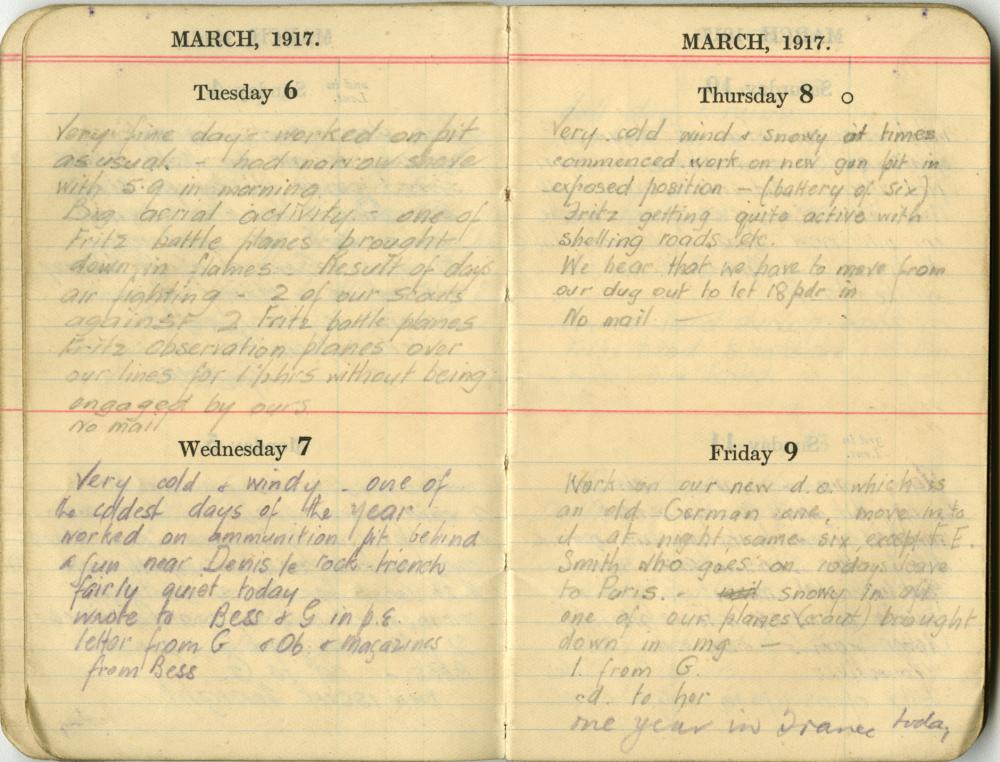 MARCH, 1917.
Tuesday 6
Very fine day - worked on pit
as usual - had narrow shave
with 5.9 in morning
Big aerial activity - one of
Fritz battle planes brought
down in flames. Result of days
air fighting - 2 of our scouts
against 2 Fritz battle planes
Fritz observation planes over
our lines for 1½hrs without being
engaged by ours
No mail
Wednesday 7
Very cold & windy - one of
the coldest days of the year
worked on ammunition pit behind
a gun near Denis le rock trench
fairly quiet today
wrote to Bess & G in p.e.
letter from G & Ob. & magazines
from Bess
MARCH, 1917.
Thursday 8
Very cold wind & snowy at times
commenced work on new gun pit in
exposed position - (battery of six)
Fritz getting quite active with
shelling roads etc.
We hear that we have to move from
our dug out to let 18pdr in
No mail
Friday 9
Work on our new d.o. which is
an old German one, move into
it at night, same six, except F.E.
Smith who goes on 10days leave
to Paris. - snowy in aft
one of our planes (scout) brought
down in mg -
l. from G.
cd. to her
one year in France today